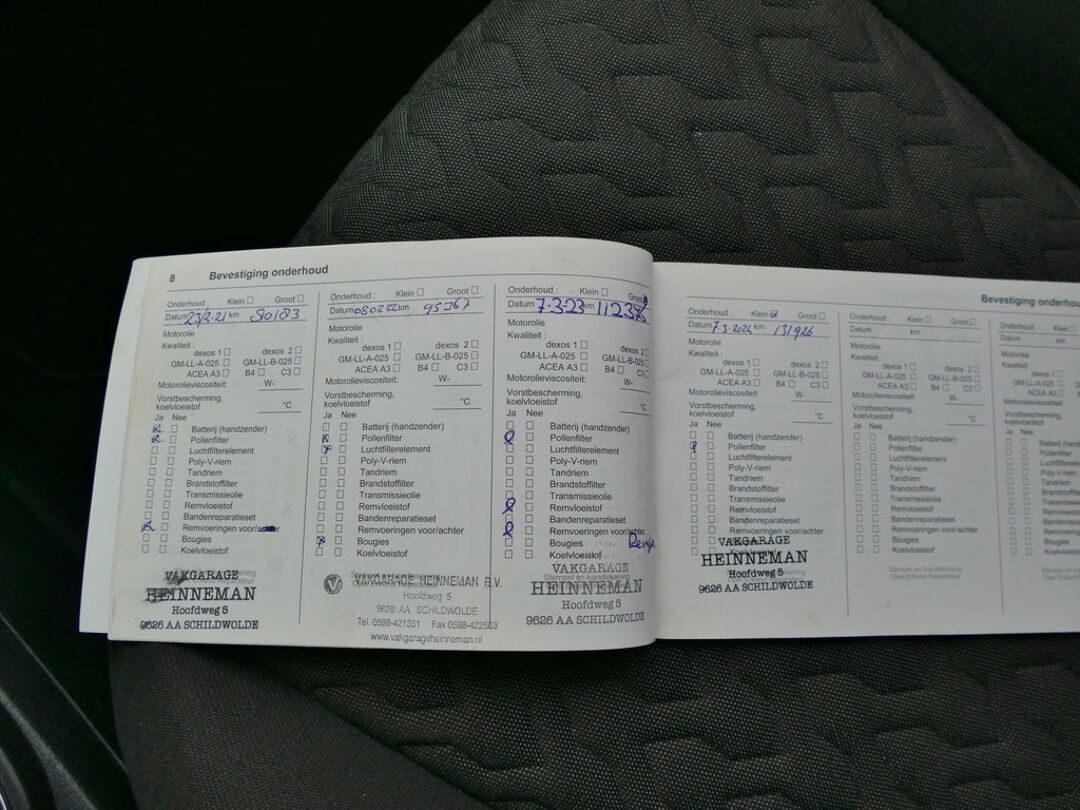 8 Bevestiging onderhoud
Onderhoud : Klein Groot
Datum 23/2-21 km 80183
Motorolie
Kwaliteit :
dexos 1 dexos 2
GM-LL-A-025 GM-LL-B-025
ACEA A3 B4 C3
Motorolieviscositeit: W-
Vorstbescherming,
koelvloeistof °C
Ja Nee
Batterij (handzender)
Pollenfilter
Luchtfilterelement
Poly-V-riem
Tandriem
Brandstoffilter
Transmissieolie
Remvloeistof
Bandenreparatieset
Remvoeringen voor/achter
Bougies
Koelvloeistof
VAKGARAGE
HEINNEMAN
Hoofdweg 5
9626 AA SCHILDWOLDE
Onderhoud : Klein Groot
Datum 080222 km 95367
Motorolie
Kwaliteit :
dexos 1 dexos 2
GM-LL-A-025 GM-LL-B-025
ACEA A3 B4 C3
Motorolieviscositeit: W-
Vorstbescherming,
koelvloeistof °C
Ja Nee
Batterij (handzender)
Pollenfilter
Luchtfilterelement
Poly-V-riem
Tandriem
Brandstoffilter
Transmissieolie
Remvloeistof
Bandenreparatieset
Remvoeringen voor/achter
Bougies
Koelvloeistof
VAKGARAGE HEINNEMAN B.V.
Hoofdweg 5
9626 AA SCHILDWOLDE
Tel. 0598-421351 Fax 0598-422503
www.vakgarageheinneman.nl
Onderhoud : Klein Groot
Datum 7-3-23 km 112376
Motorolie
Kwaliteit :
dexos 1 dexos 2
GM-LL-A-025 GM-LL-B-025
ACEA A3 B4 C3
Motorolieviscositeit: W-
Vorstbescherming,
koelvloeistof °C
Ja Nee
Batterij (handzender)
Pollenfilter
Luchtfilterelement
Poly-V-riem
Tandriem
Brandstoffilter
Transmissieolie
Remvloeistof
Bandenreparatieset
Remvoeringen voor/achter
Bougies
Koelvloeistof
Stempel en handtekening
VAKGARAGE
HEINNEMAN
Hoofdweg 5
9626 AA SCHILDWOLDE
Bevestiging onderhoud
Onderhoud : Klein Groot
Datum 7-3-2024 km 131926
Motorolie
Kwaliteit :
dexos 1 dexos 2
GM-LL-A-025 GM-LL-B-025
ACEA A3 B4 C3
Motorolieviscositeit: W-
Vorstbescherming,
koelvloeistof °C
Ja Nee
Batterij (handzender)
Pollenfilter
Luchtfilterelement
Poly-V-riem
Tandriem
Brandstoffilter
Transmissieolie
Remvloeistof
Bandenreparatieset
Remvoeringen voor/achter
Bougies
Koelvloeistof
VAKGARAGE
HEINNEMAN
Hoofdweg 5
9626 AA SCHILDWOLDE
Onderhoud : Klein Groot
Datum km
Motorolie
Kwaliteit :
dexos 1 dexos 2
GM-LL-A-025 GM-LL-B-025
ACEA A3 B4 C3
Motorolieviscositeit: W-
Vorstbescherming,
koelvloeistof °C
Ja Nee
Batterij (handzender)
Pollenfilter
Luchtfilterelement
Poly-V-riem
Tandriem
Brandstoffilter
Transmissieolie
Remvloeistof
Bandenreparatieset
Remvoeringen voor/achter
Bougies
Koelvloeistof
Stempel en handtekening
Opel Erkend Reparateur
Onderhoud : Klein
Datum km
Motorolie
Kwaliteit :
dexos 1
GM-LL-A-025
ACEA A3
Motorolieviscositeit:
Vorstbescherming,
koelvloeistof
Ja Nee
Batterij
Pollenfilter
Luchtfilterelement
Poly-V-riem
Tandriem
Brandstoffilter
Transmissieolie
Remvloeistof
Bandenreparatieset
Remvoeringen
Bougies
Koelvloeistof